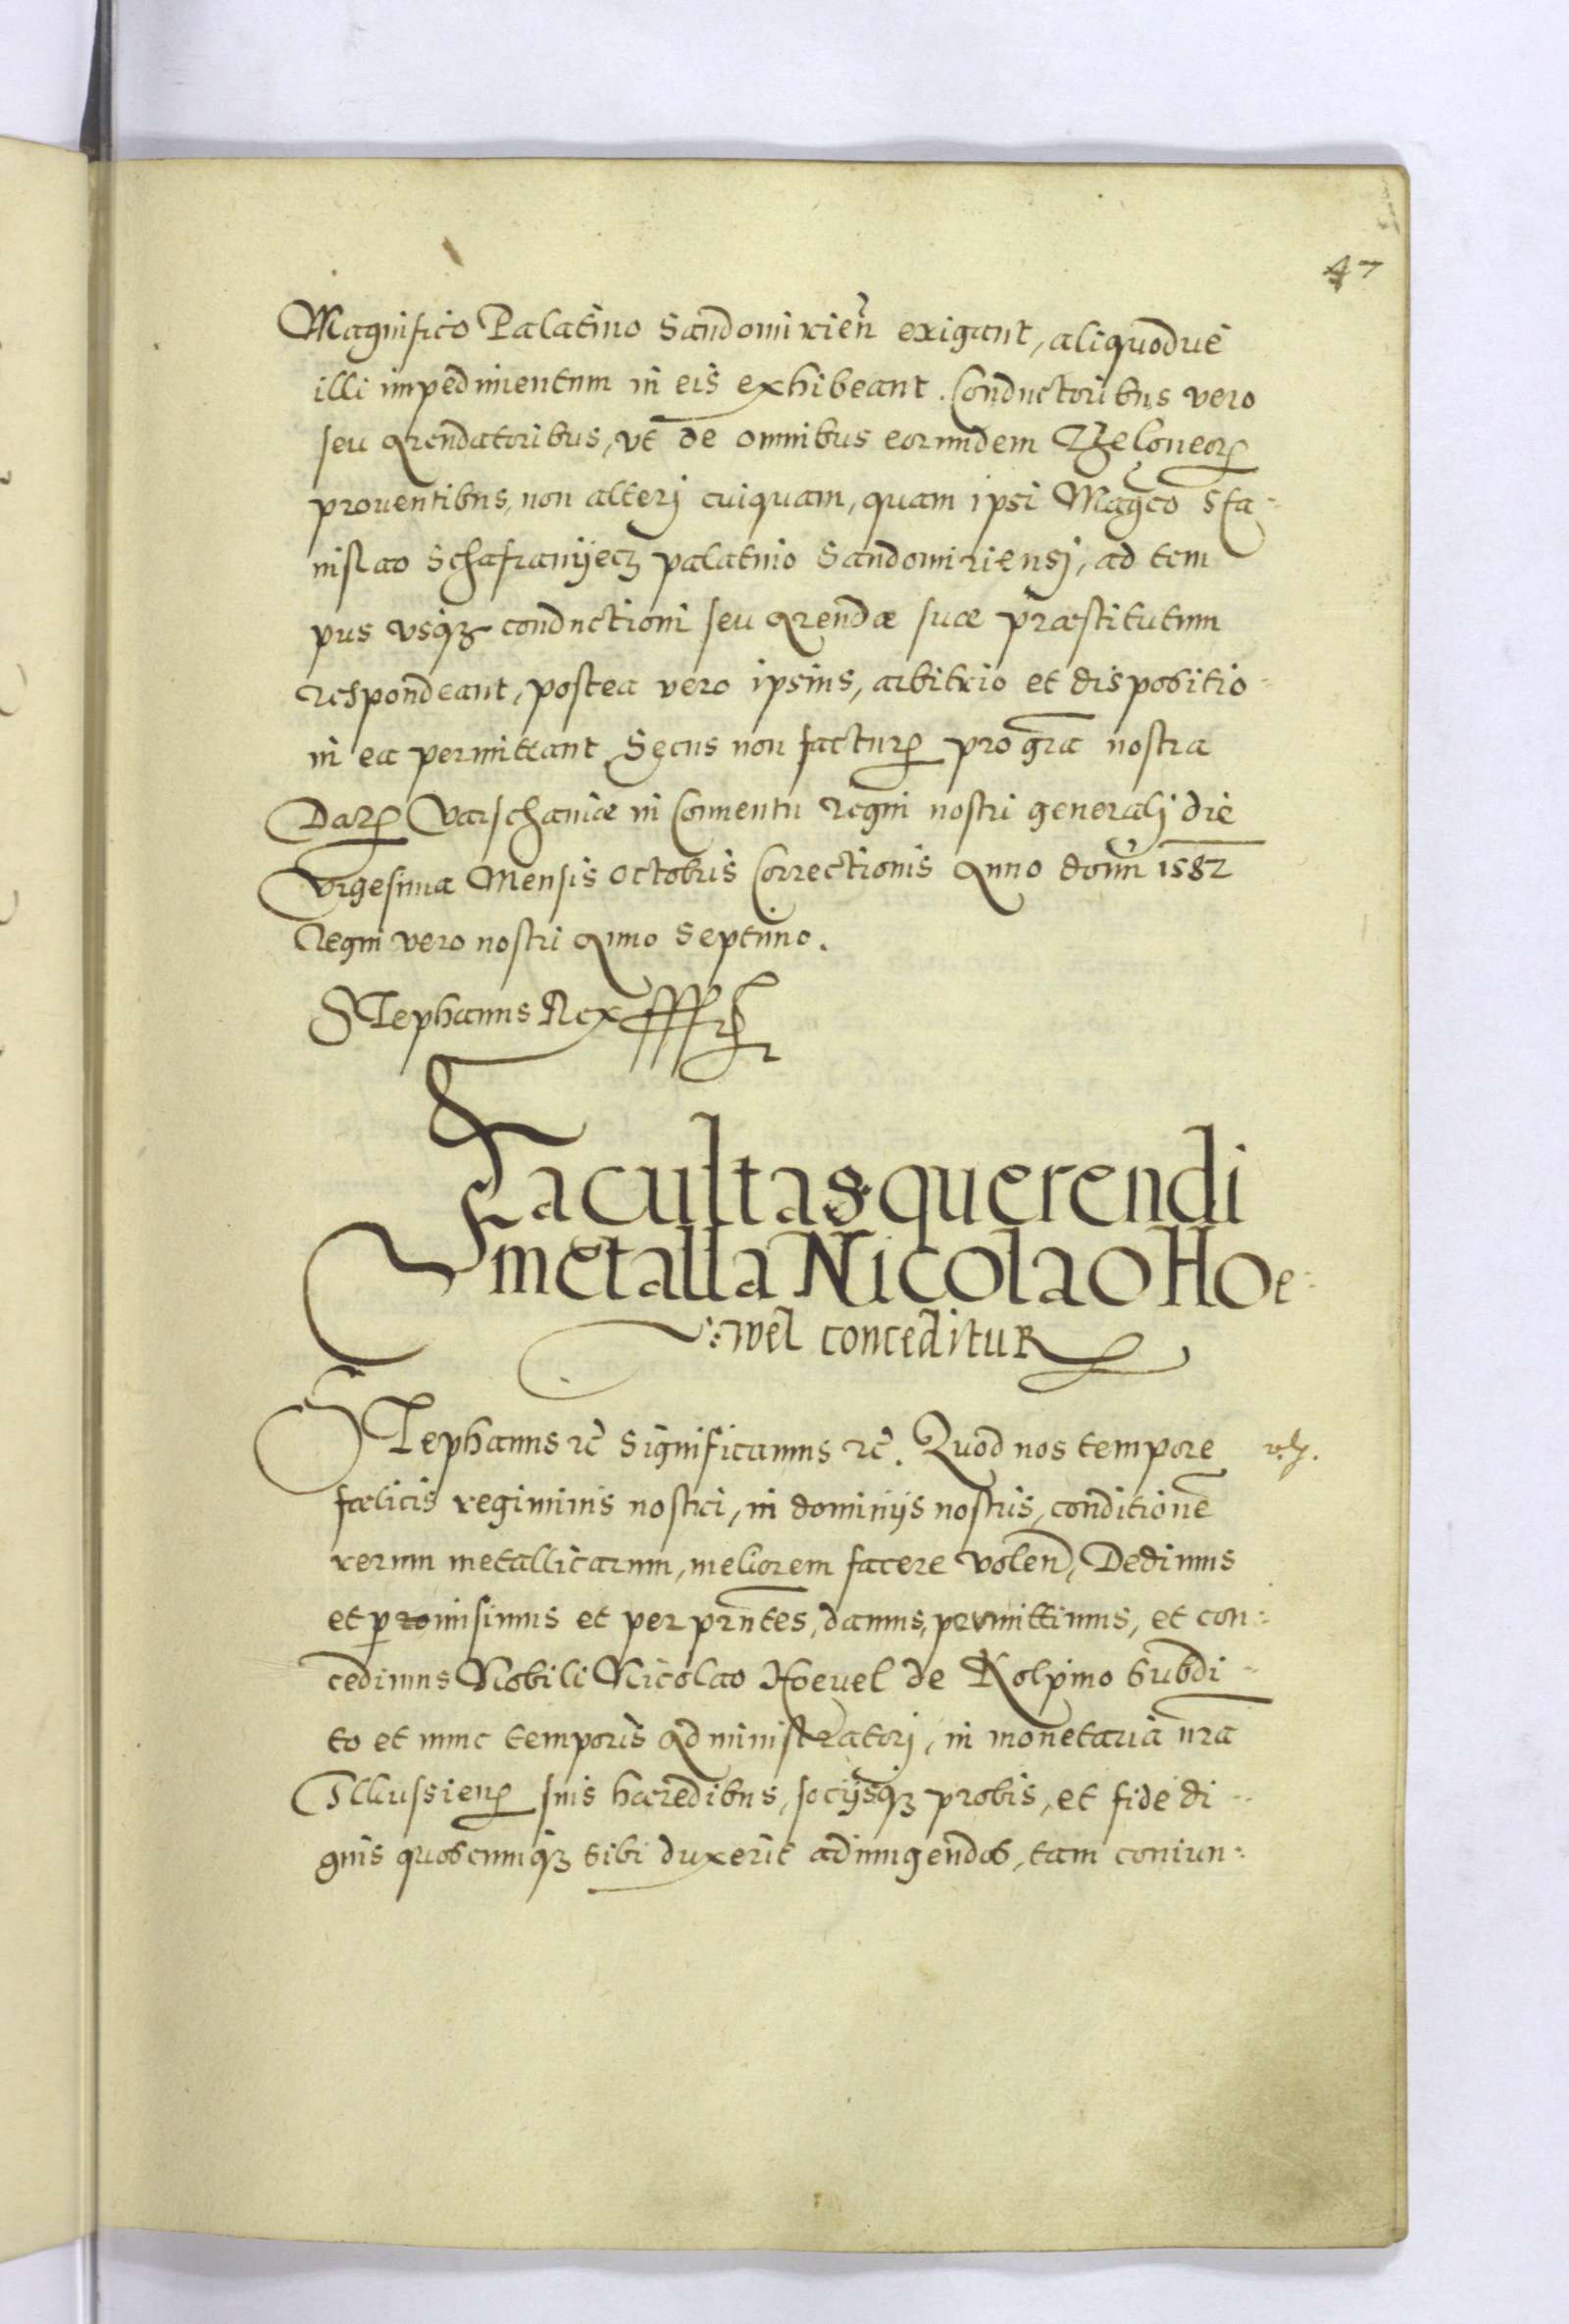 47
Magnifico Palatino Sandomirien̄ exigant, aliquodve
illi impedimentum in eis exhibeant. Conductoribus vero
seu Arendatoribus, vt de omnibus eorundem Theloneorꝝ
prouentibus, non alterj cuiquam, quam ipsi Magco Sta-
nislao Schafranyecz palatino Sandomiriensj, ad tem
pus vsqꝫ conductioni seu Arendæ suæ præstitutum
respondeant, postea vero ipsius, arbitrio et dispositio-
ni ea permittant Secus non facturꝝ pro gra nostra
Datꝝ Varschaniæ in Conuentu Regni nostri generalj die
Vigesima Mensis Octobris Correctionis Anno domī 1582
Regni vero nostri Anno Septimo.
Stephanus Rex
Facultas querendi
metalla Nicolao Hoe-
wel conceditur
Stephanus ꝛc̄ Significamus ꝛc̄. Quod nos tempore
fœlicis regiminis nostri, in dominijs nostris, conditionē
rerum metallicarum, meliorem facere volen̄, Dedimus
et promisimus et per prn̄tes, damus, permittimus, et con-
cedimus Nobili Nicolao Hoeuel de Kolpino Subdi-
to et nunc temporis Administratorj, in monetaria nr̄a
Illussienꝝ suis hæredibus, socijsqꝫ probis, et fide di-
gnis quoscunqꝫ sibi duxerit adiungendos, tam coniun-